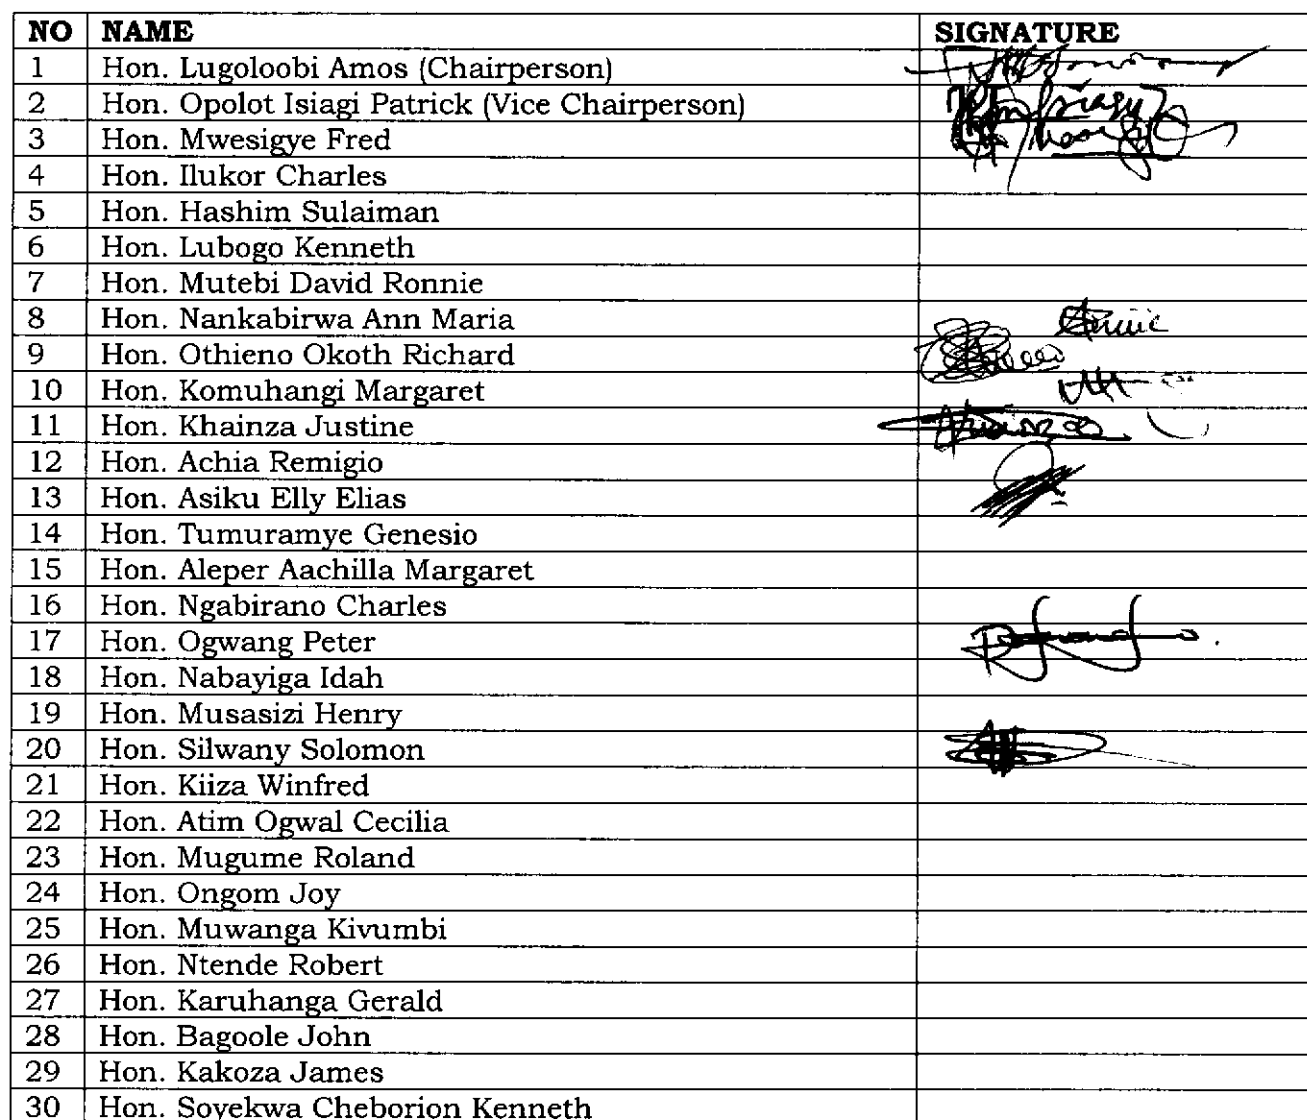 NO NAME SIGNATURE
1 Hon. Lugoloobi Amos (Chairperson)
2 Hon. Opolot Isiagi Patrick (Vice Chairperson)
3 Hon. Mwesigye Fred
4 Hon. Ilukor Charles
5 Hon. Hashim Sulaiman
6 Hon. Lubogo Kenneth
7 Hon. Mutebi David Ronnie
8 Hon. Nankabirwa Ann Maria
9 Hon. Othieno Okoth Richard
10 Hon. Komuhangi Margaret
11 Hon. Khainza Justine
12 Hon. Achia Remigio
13 Hon. Asiku Elly Elias
14 Hon. Tumuramye Genesio
15 Hon. Aleper Aachilla Margaret
16 Hon. Ngabirano Charles
17 Hon. Ogwang Peter
18 Hon. Nabayiga Idah
19 Hon. Musasizi Henry
20 Hon. Silwany Solomon
21 Hon. Kiiza Winfred
22 Hon. Atim Ogwal Cecilia
23 Hon. Mugume Roland
24 Hon. Ongom Joy
25 Hon. Muwanga Kivumbi
26 Hon. Ntende Robert
27 Hon. Karuhanga Gerald
28 Hon. Bagoole John
29 Hon. Kakoza James
30 Hon. Soyekwa Cheborion Kenneth